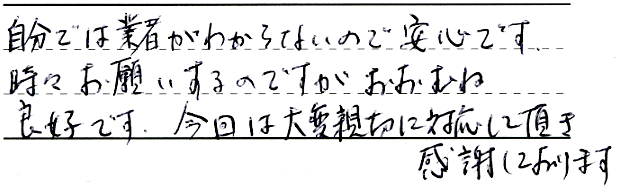 自分では業者がわからないので安心です.
時々お願いするのですがおおむね
良好です. 今回は大変親切に対応して頂き
感謝しております